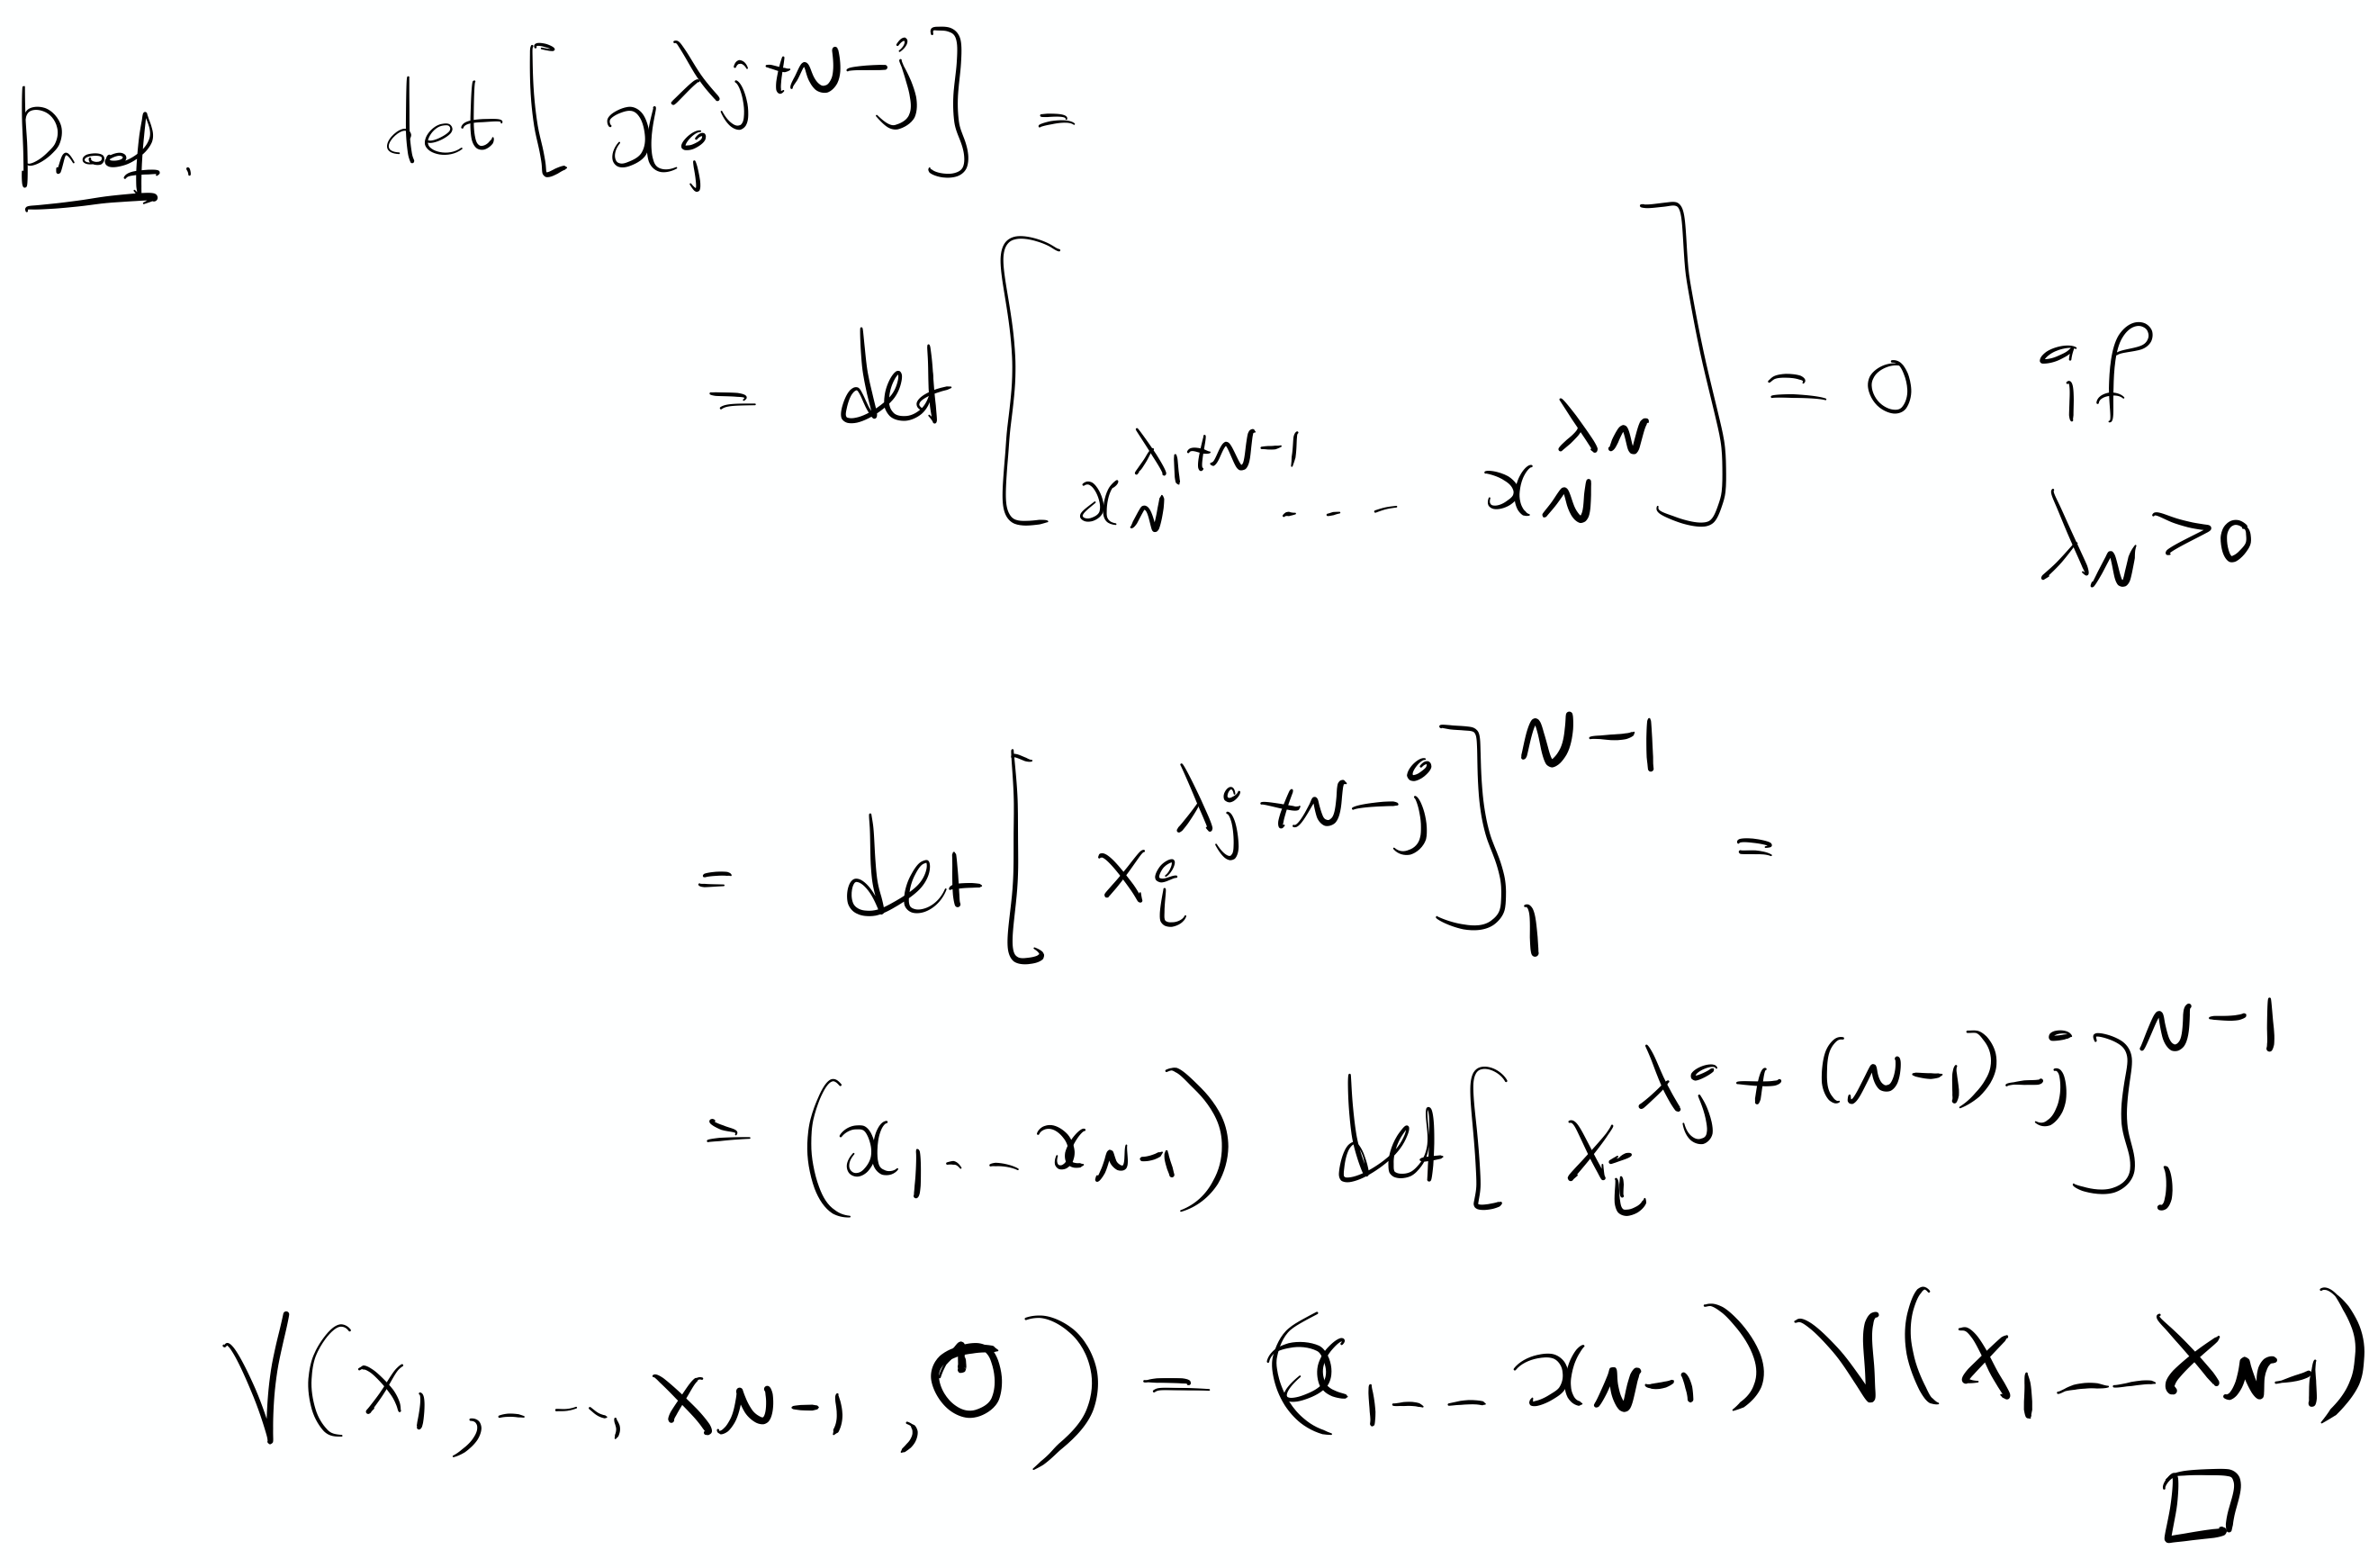 Proof. det [ x_i^{λ_j+N-j} ] =
= det [ x_N^{λ_1+N-1} --- x_N^{λ_N} ] = 0 if λ_N > 0
= det [ x_i^{λ_j+N-j} ]_1^{N-1} =
= (x_1 -- x_{N-1}) det [ x_i^{λ_j+(N-1)-j} ]_1^{N-1}
V(x_1, ---, x_{N-1}, 0) = (x_1 -- x_{N-1}) V(x_1 -- x_{N-1})
□